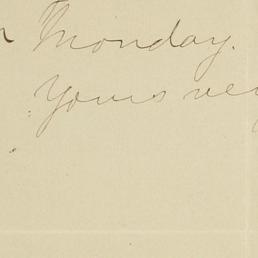 Monday.
Yours ve